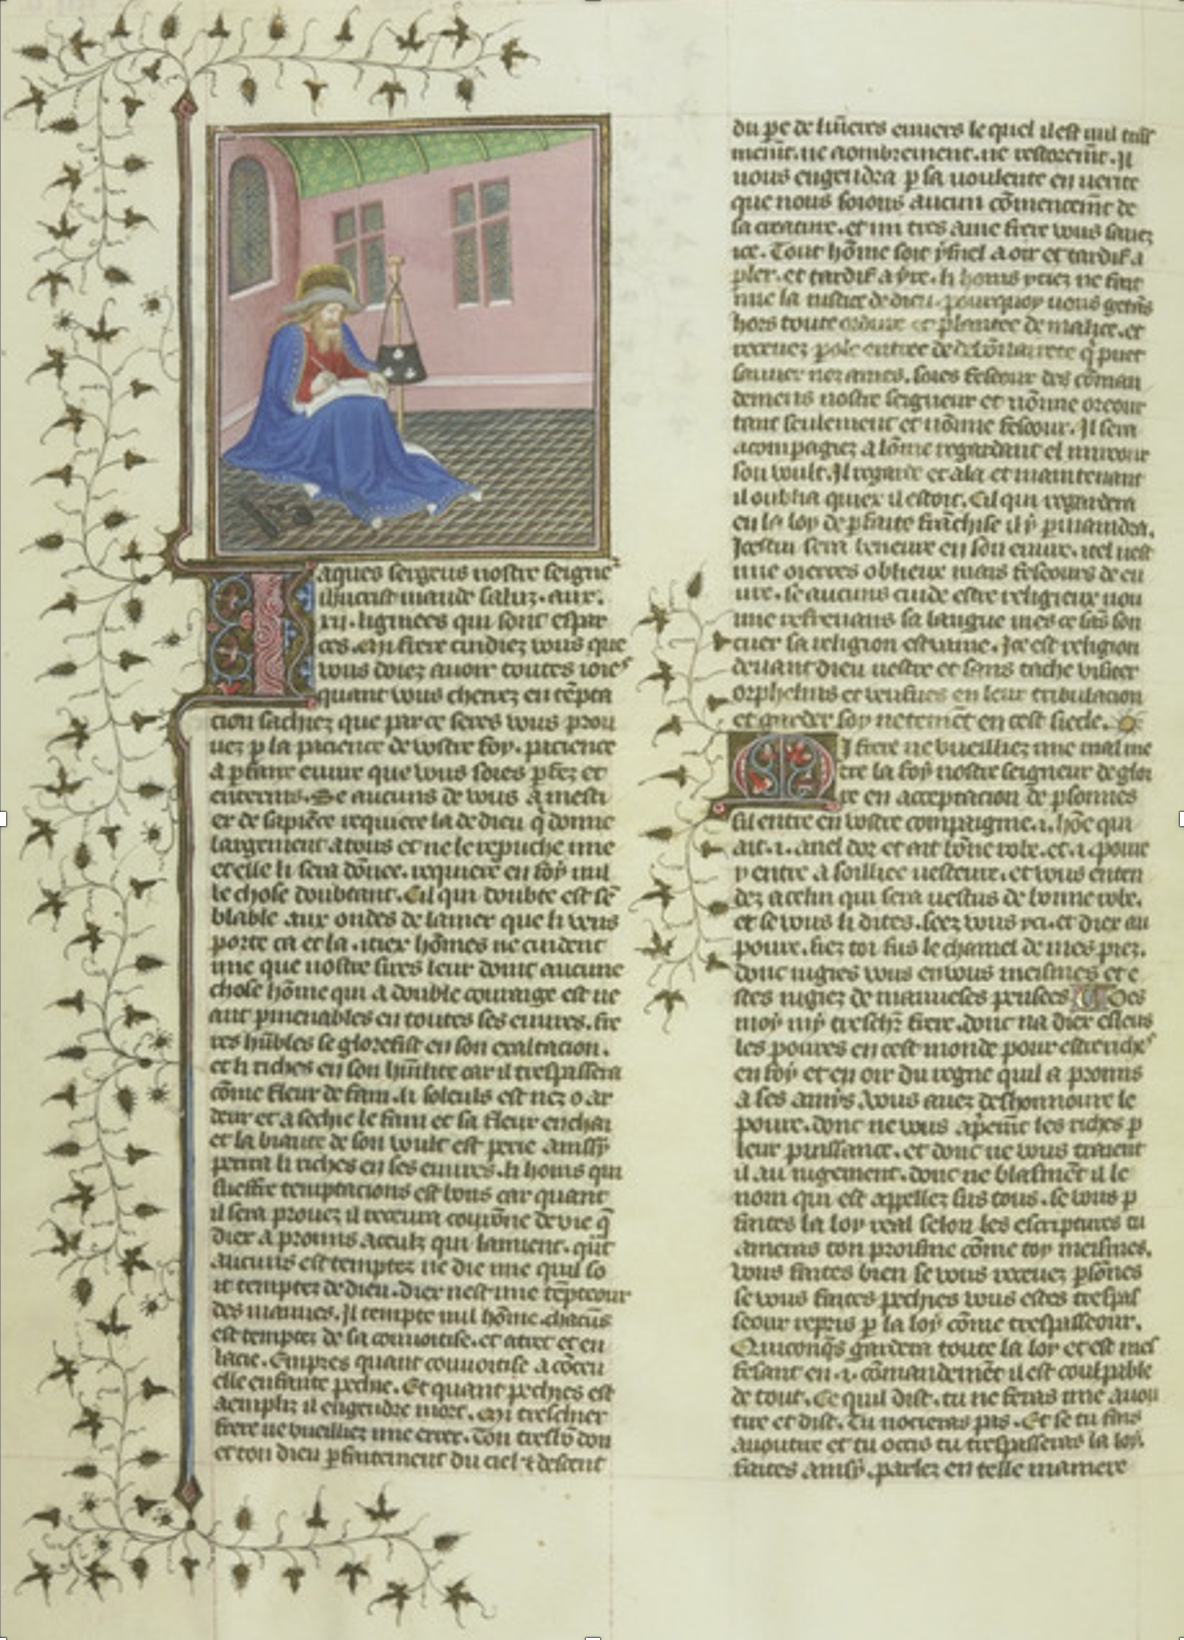 Iaques sergens nostre seigneʳ
ihucrist mande saluz. aux.
xii. lignees qui sont espar
ces. Mi frere cuidiez vous que
vous doiez auoir toutes ioies
quant vous cheuez en tēpta
cion sachiez que par ce seres vous prou
uez p̱ la pacience de vostre foy. pacience
a p̱faite euure que vous soies p̱fez et
enterins. Se aucuns de vous a mesti
er de sapiēce requiere la de dieu q̄ donne
largement a tous et ne le repuche mie
et elle li sera dōnee. requiere en foy nul
le chose doubtant. Cil qui doubte est sē
blable aux ondes de la mer que li vens
porte ca et la. itiex hōmes ne cuident
mie que nostre sires leur doint aucune
chose hōme qui a double couraige est ne
ant p̱menables en toutes ses euures. fre
res hūbles se glorefist en son exaltacion.
et li riches en son hūilite car il trespassera
cōme fleur de fain. li soleuls est nez o ar
deur et a sechie le fain et sa fleur enchai
et la biaute de son voult est perie aussy
perira li riches en ses euures. li homs qui
sueffre temptacions est bons car quant
il sera prouez il receura courōne de vie q̄
diex a promis a ceulz qui lament. qūt
aucuns est temptez ne die mie quil so
it temptez de dieu. diex nest mie tēpteour
des mauues. Il tempte nul hōme. chacūs
est temptez de sa couuoitise. et atret et en
lacie. Empres quant couuoitise a cōceu
elle enfante pechie. Et quant pechies est
aempliz il engendre mort. Mi treschier
frere ne vueilliez mie errer. Tou tresbō don
et tou dieu p̱faitement du ciel ⁊ descent
du p̱e de lūieres enuers le quel il est nul tres
ne nombrement. ne
nous engendra p̱ sa voulente en verite
que nous soions aucun cōmencemēt de
sa creature. et mi tres ame frere vous sauez
ice. Tout hōme soit ẏsnel a oir et tardif a
p̱ler. et tardif a ẏre. li homs yriez ne fait
mie la iustice de dieu. pourquoy vous getās
hors toute ordure et plantee de malice. et
receuez p̱ole entree de debōnairete q̄ puet
sauuer noz ames. soies feseour des cōman
demens nostre seigneur et nōmie oreour
tant seulement et nōmie feseour. Il sera
acompagiez a lōme regardant el mireour
son voult. Il regarde et ala et maintenant
il oublia quiex il estoit. Cil qui regardera
en la loy de p̱faite frāchise il ẏ p̱maindra.
Icestui sera beneure en son euure. nel nest
mie oierres oblieux mais feseours de eu
ure. se aucuns cuide estre religieux non
mie refrenans sa langue mes ce las son
cuer sa religion est vaine. Ice est religion
deuant dieu nestre et sans tache visiter
orphelins et veufues en leur tribulacion
et garder soy netemēt en cest siecle.
MI frere ne vueilliez mie mal me
tre la foy nostre seigneur de gloi
re en acceptacion de p̱sonnes
sil entre en vostre compaignie. i. hōe qui
ait. i. anel dor et ait bōne robe. et. i. poure
y entre a soilliee vesteure. et vous enten
dez a celui qui sera vestus de bonne robe.
et se vous li dites. seez vous yci. et diex au
poure. siez toi sus le chamel de mes piez.
donc iugies vous en vous meismes et e
stes iugiez de mauueses pensees Oes
moy my trescħr frere. donc na diex esleus
les poures en cest monde pour estre riches
en foy et en oir du regne quil a promis
a ses amẏs. Vous auez deshonnoure le
poure. donc ne vous ap̱ēint les riches p̱
leur puissance. et donc ne vous traient
il au iugement. donc ne blasmēt il le
nom qui est appellez sus tous. se vous p̱
faites la loy real selon les escriptures tu
ameras ton proisme cōme toy meismes.
Vous faites bien se vous receuez p̱sōnes
se vous faites pechies vous estes trespas
seour repris p̱ la loy cōme trespasseour.
Quiconqs̄ gardera toute la loy et est mes
fesant en. i. cōmandemēt il est coulpable
de tout. Ce quil dist. tu ne feras mie auou
tire et dist. Tu nocieras pas. Et se tu fais
auoutire et tu occis tu trespasseras la loy.
faites aussy. parlez en telle maniere